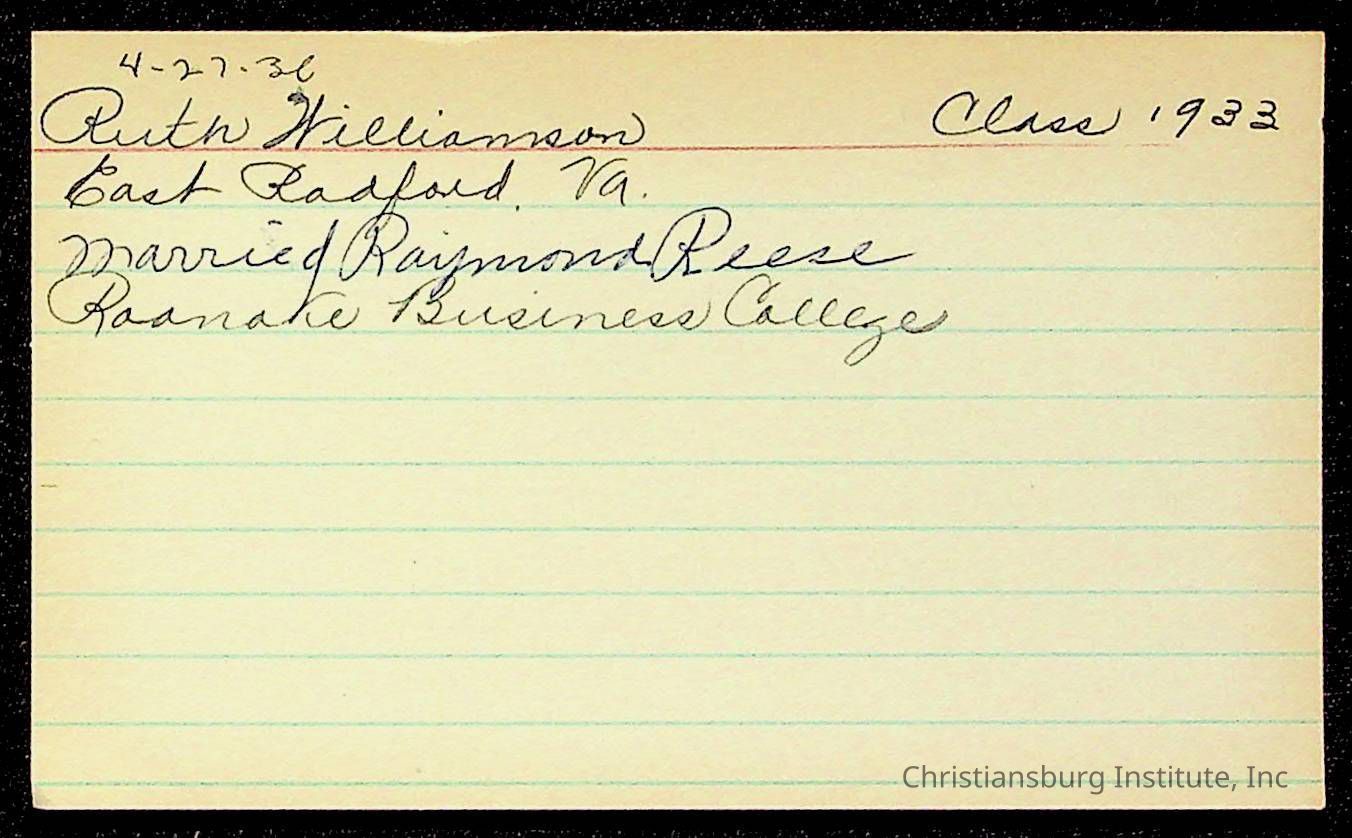 4-27-36
Ruth Williamson Class 1933
East Radford, Va.
Married Raymond Reese
Roanoke Business College
Christiansburg Institute, Inc